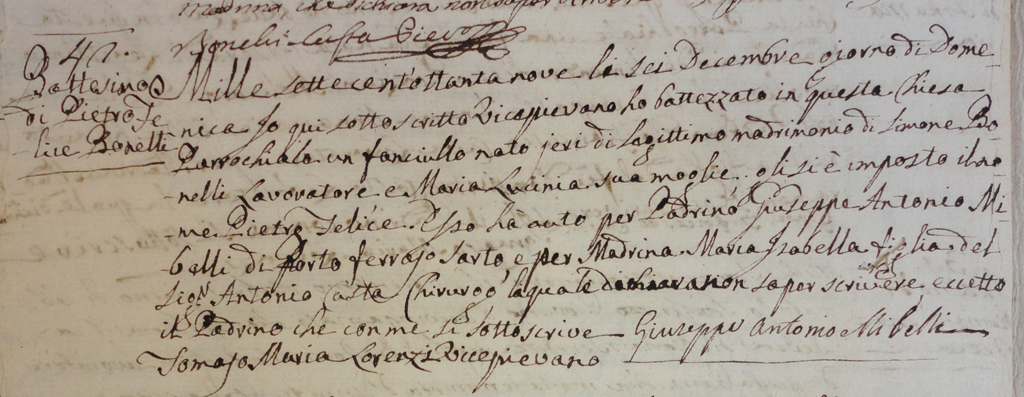 madrina, che dichiara non saper scrivere
Bonelli Casa Pievo
47.
Battesimo
di Pietro Fe
lice Bonelli
Mille sette cent'ottanta nove li sei Decembre giorno di Dome
nica Io qui sotto scritto Vicepievano ho battezzato in questa Chiesa
Parrochiale un fanciullo nato jeri di legittimo madrimonio di Simone Bo
nelli Lavoratore e Maria Lucinia sua moglie. gli si è imposto il no
me Pietro Felice. Esso ha auto per Padrino Giuseppe Antonio Mi
belli di Porto ferrajo sarto, e per Madrina Maria Isabella figlia del
Sigr. Antonio Casta Chirurgo, la quale dichiara non saper scrivere eccetto
il Padrino che con me si sottoscrive Giuseppe Antonio Mibelli
Tomajo Maria Lorenzi Vicepievano